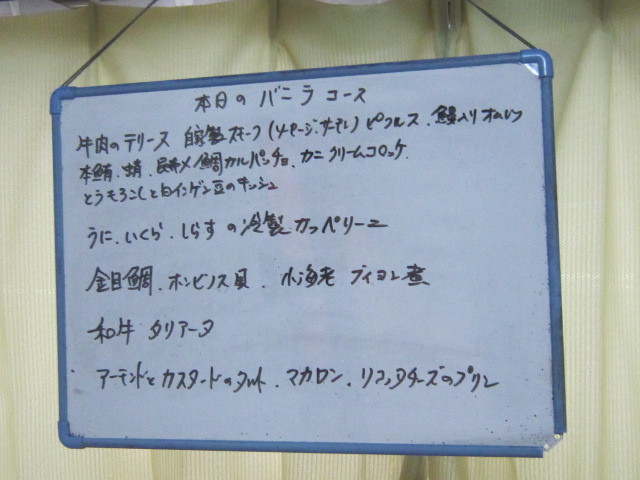 本日の バニラ コース
牛肉のテリーヌ 自家製スモーク (ソーセージ、サーモン) ピクルス、鰻入りオムレツ
本鮪、蛸、昆布〆鯛カルパッチョ、カニクリームコロッケ
とうもろこしと白インゲン豆のキッシュ
うに、いくら、しらす の冷製 カッペリーニ
金目鯛、ホンビノス貝、小海老 ブイヨン煮
和牛 タリアータ
アーモンドとカスタードのタルト、マカロン、リコッタチーズのプリン